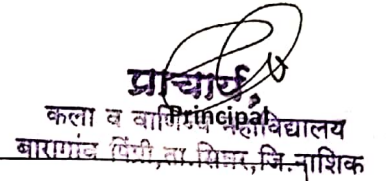 प्राचार्य,
Principal
कला व वाणिज्य महाविद्यालय
बारागांव पिंप्री, ता. सिन्नर, जि. नाशिक